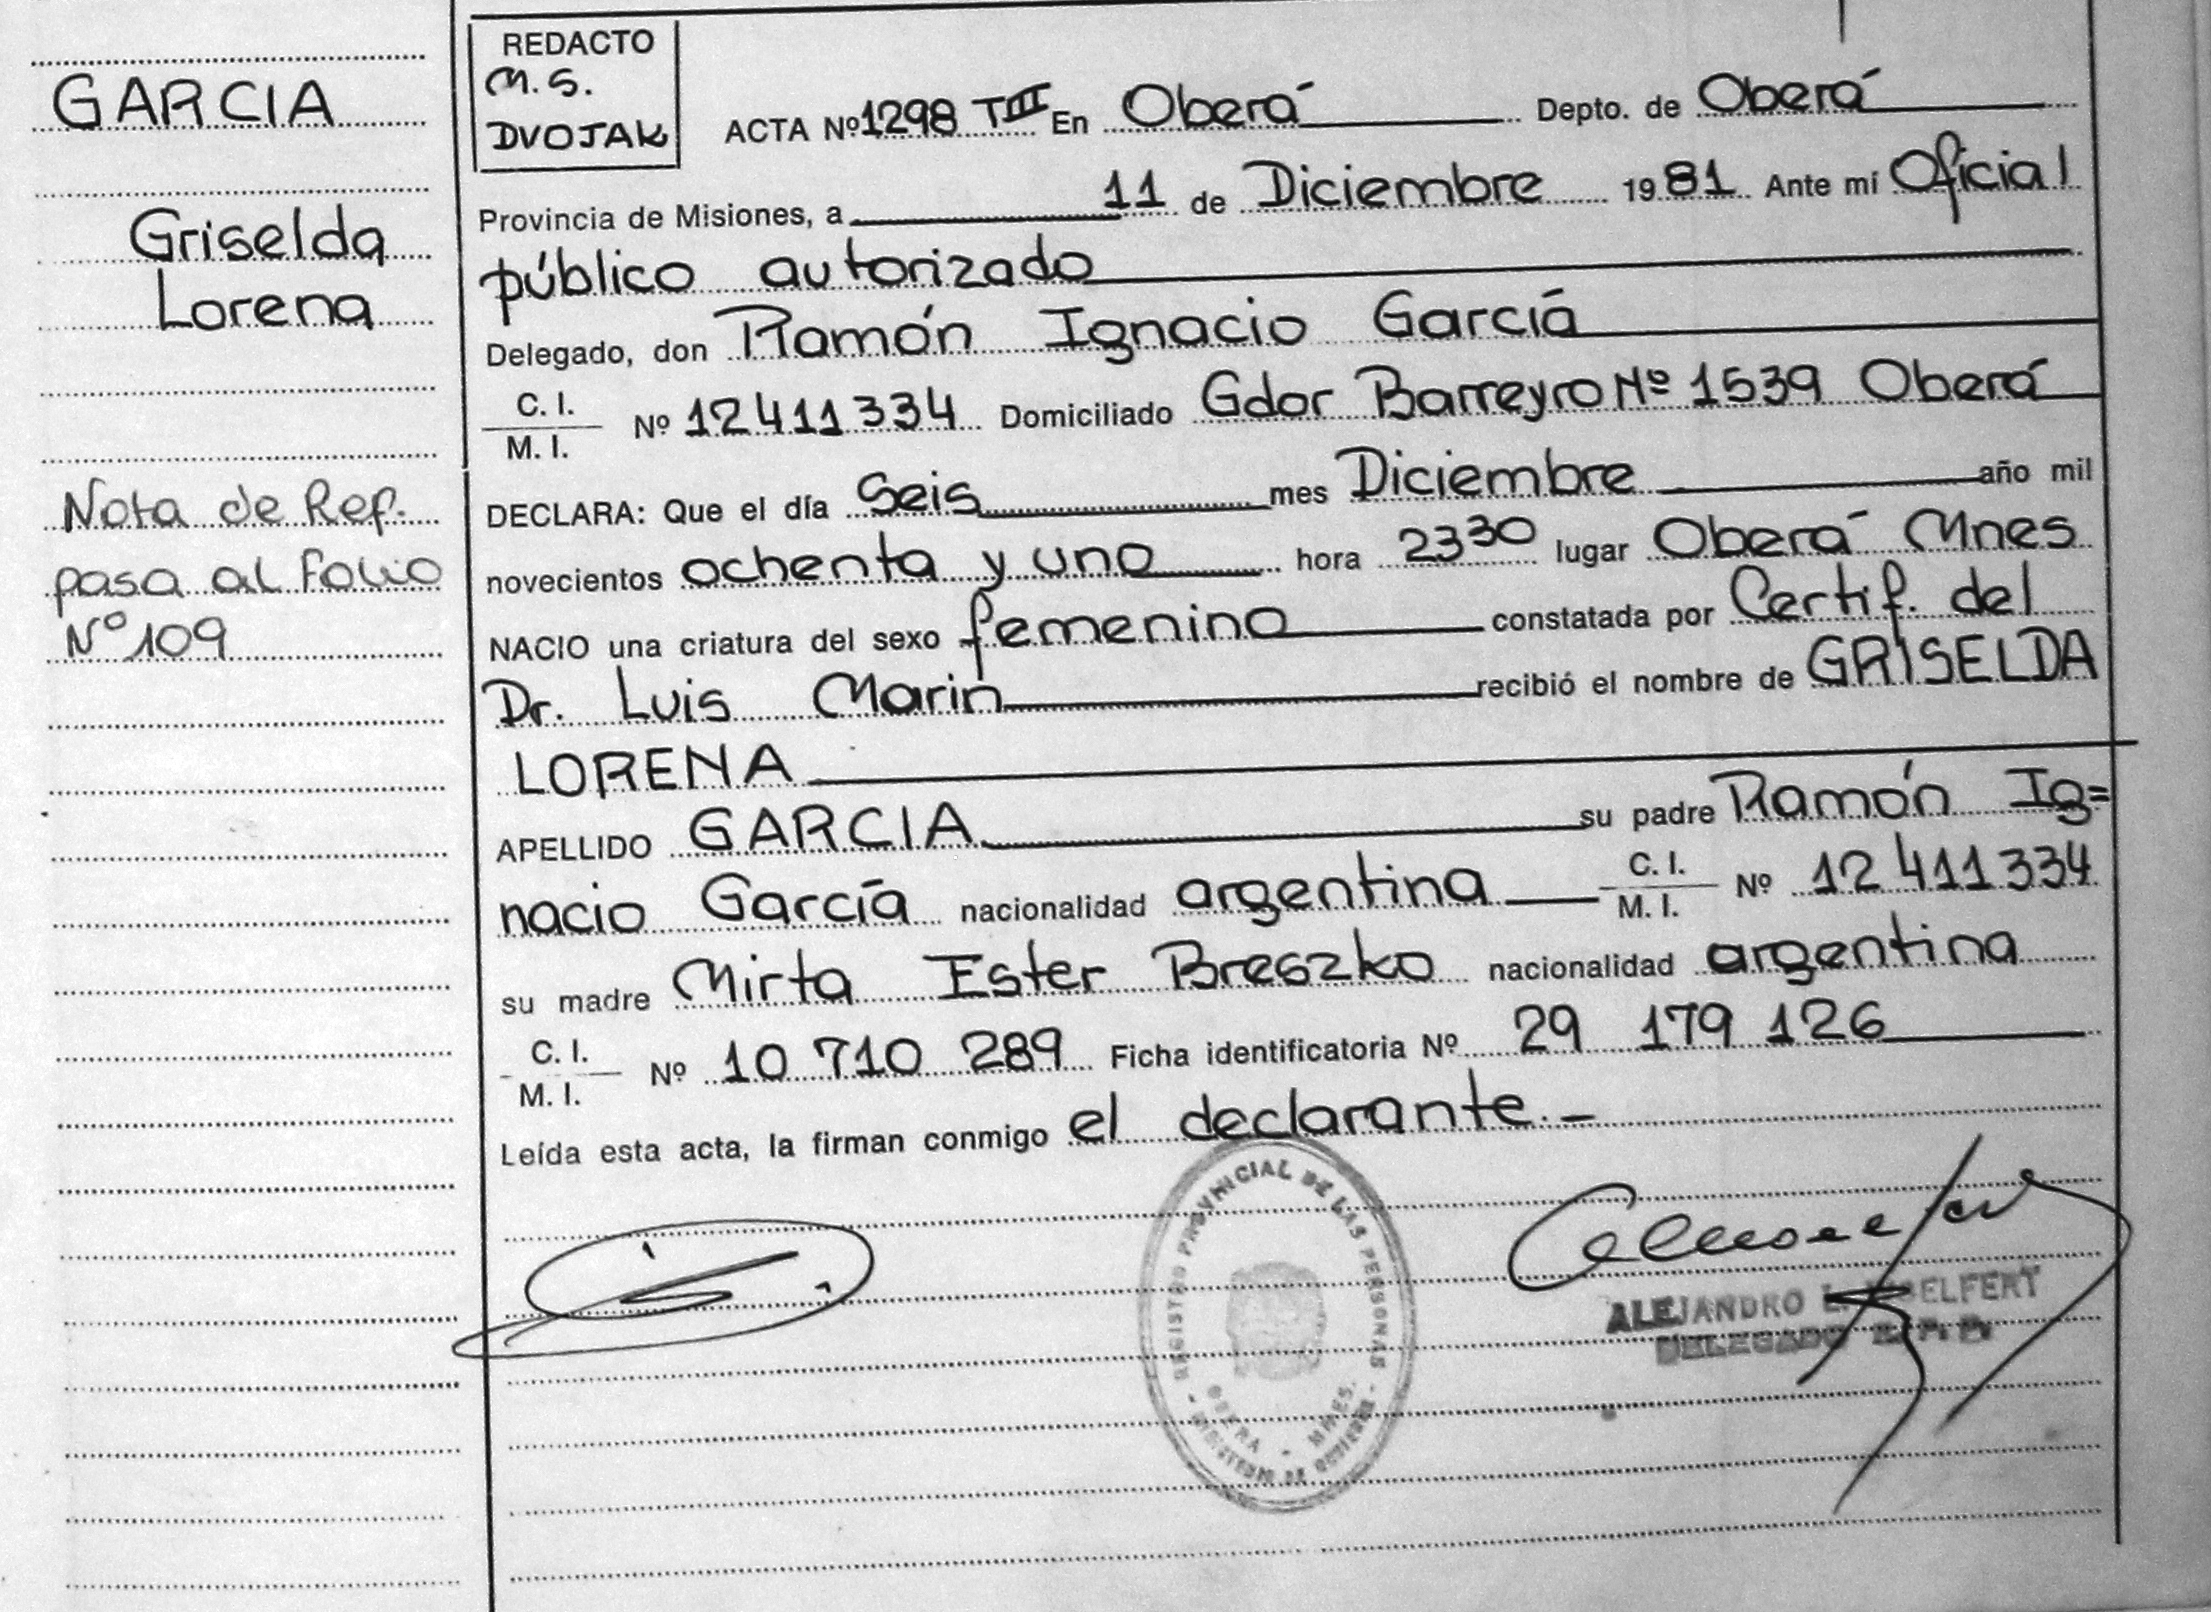 GARCIA
Griselda
Lorena
Nota de Ref.
pasa al Folio
Nº 109
REDACTO
M.S.
DVOJAK
ACTA Nº 1298 TIII En Oberá Depto. de Oberá
Provincia de Misiones, a 11 de Diciembre 1981 Ante mí Oficial
público autorizado
Delegado, don Ramón Ignacio García
C. I.
M. I.
Nº 12411334 Domiciliado Gdor Barreyro Nº 1539 Oberá
DECLARA: Que el día Seis mes Diciembre año mil
novecientos ochenta y uno hora 23 30 lugar Oberá Mnes
NACIO una criatura del sexo femenino constatada por Certif. del
Dr. Luis Marin recibió el nombre de GRISELDA
LORENA
APELLIDO GARCIA su padre Ramón Ig=
nacio García nacionalidad argentina C. I. M. I. Nº 12 411 334
su madre Mirta Ester Breszko nacionalidad argentina
C. I.
M. I.
Nº 10 710 289 Ficha identificatoria Nº 29 179 126
Leída esta acta, la firman conmigo el declarante.-
REGISTRO PROVINCIAL DE LAS PERSONAS
OBERA - MNES.
MINISTERIO DE GOBIERNO
ALEJANDRO
DELEGADO R. P. P.